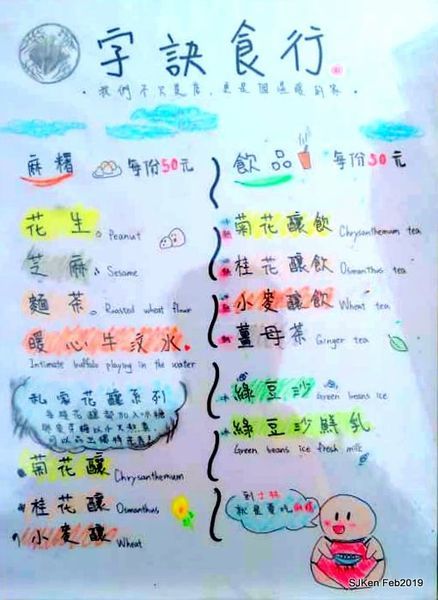 字訣食行
我們不只是店，更是個溫暖的家
麻糬 每份50元
花生 Peanut
芝麻 Sesame
麵茶 Roasted wheat flour
暖心牛汶水
Intimate buffalo playing in the water
私家花釀系列
菊花釀 Chrysanthemum
桂花釀 Osmanthus
小麥釀 Wheat
飲品 每份30元
菊花釀飲 Chrysanthemum tea
桂花釀飲 Osmanthus tea
小麥釀飲 Wheat tea
薑母茶 Ginger tea
綠豆沙
Green beans ice
綠豆沙鮮乳
Green beans ice fresh milk
到士林
就是要吃麻糬
SJKen Feb2019